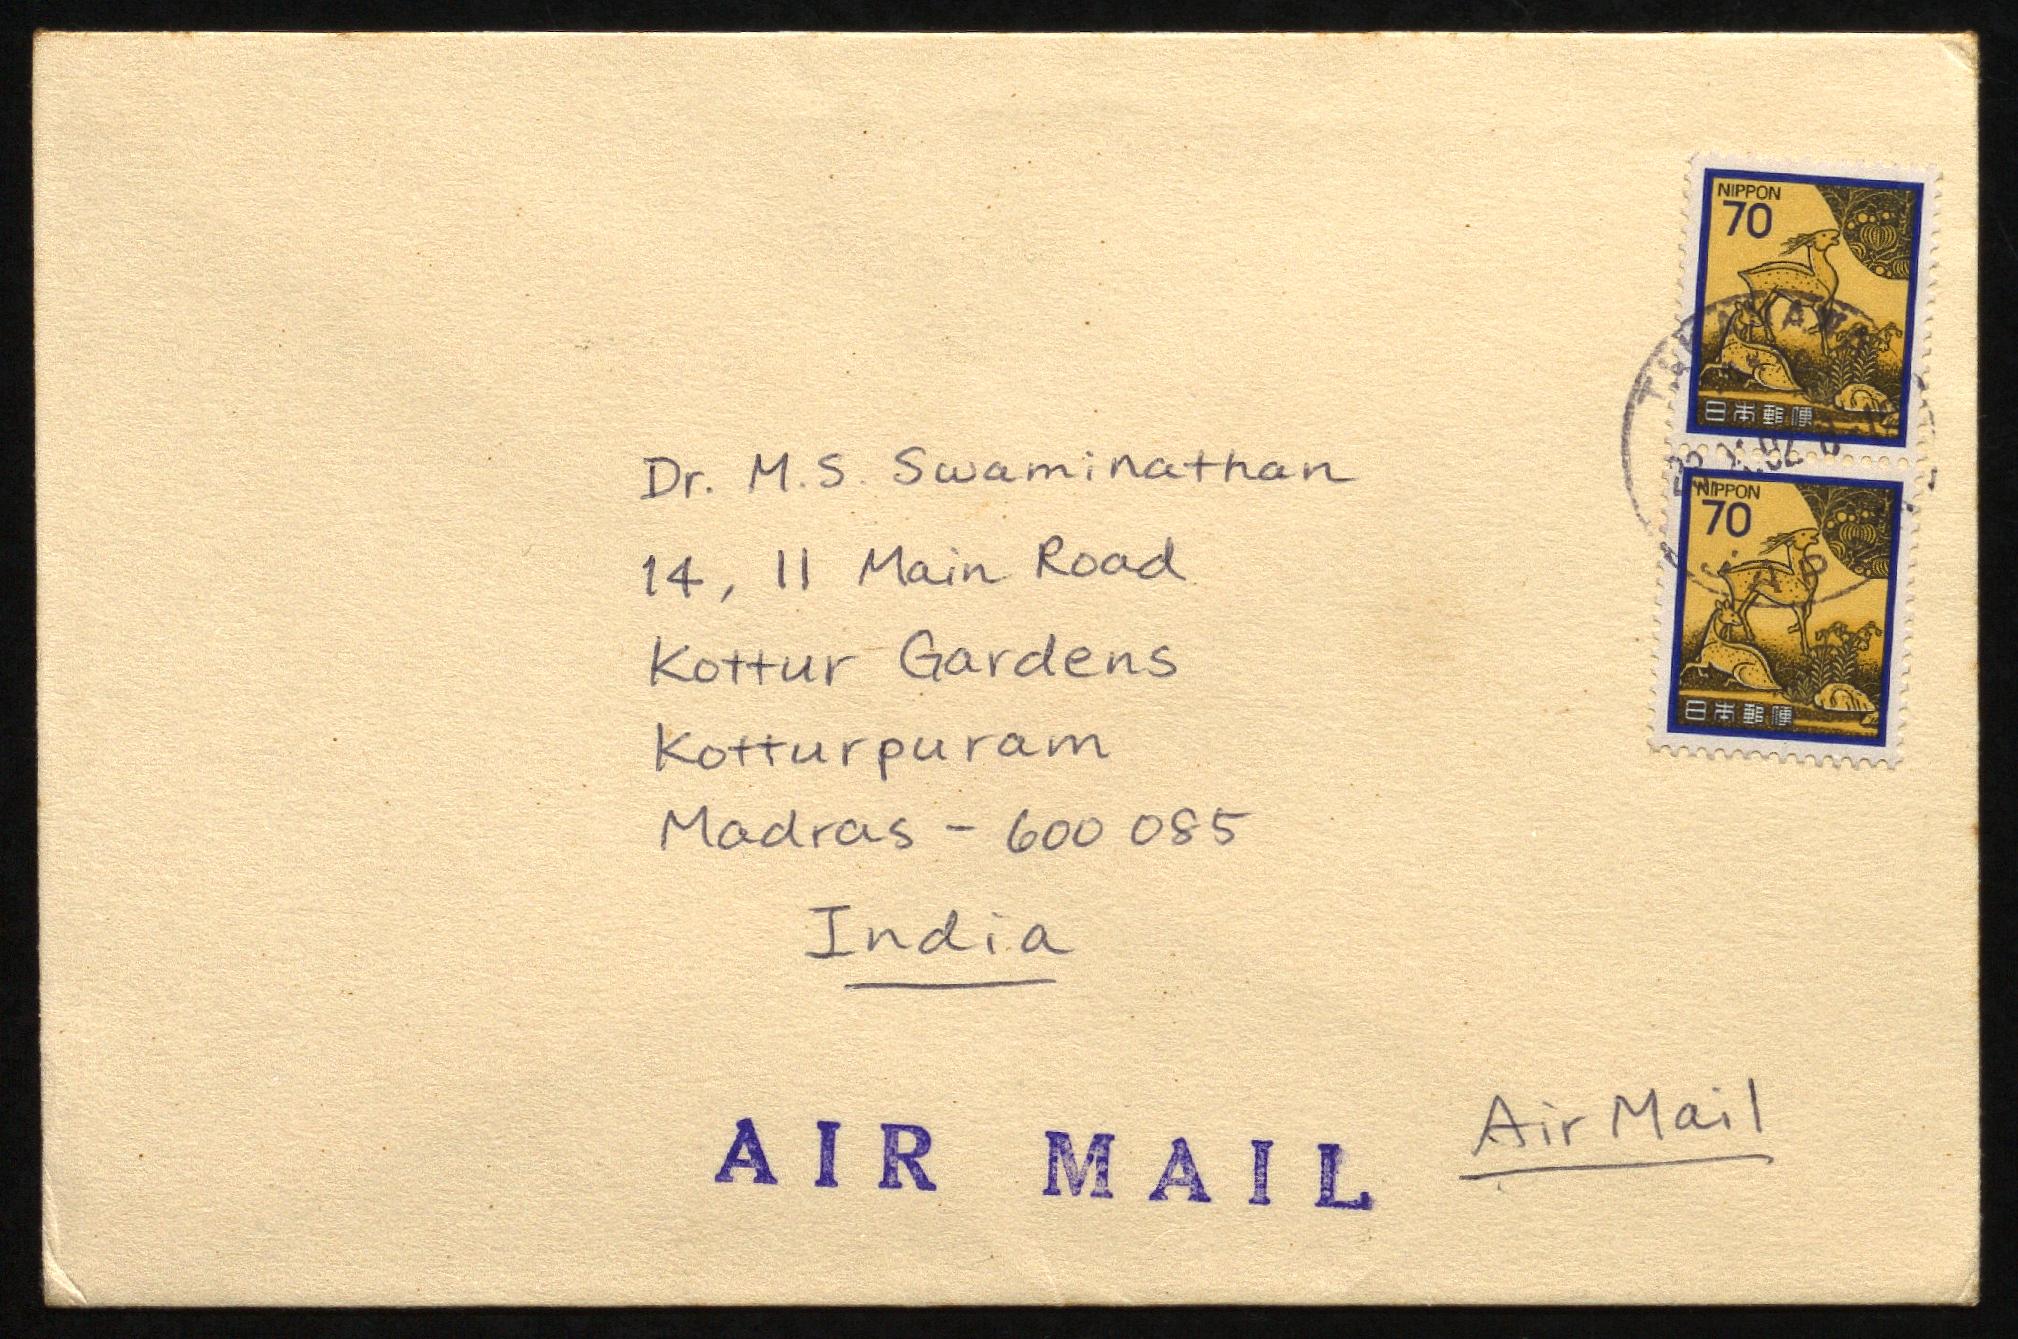 NIPPON
70
日本郵便
NIPPON
70
日本郵便
Dr. M.S. Swaminathan
14, 11 Main Road
Kottur Gardens
Kotturpuram
Madras - 600 085
India
Air Mail
AIR MAIL